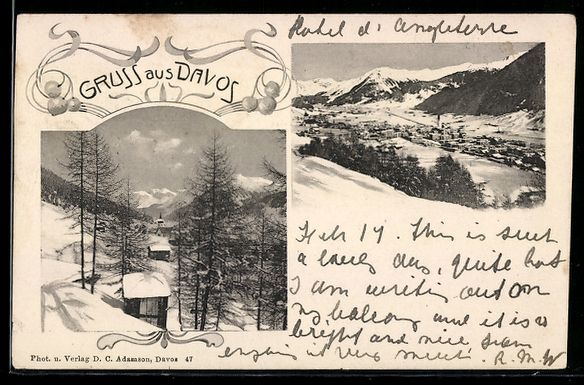 Hotel d'Angleterre
GRUSS AUS DAVOS
Feb 17. This is such
a lovely day, quite hot
I am writing out on
my balcony and it is so
bright and nice I am
enjoying it very much. R. M. W
Phot. u. Verlag D. C. Adamson, Davos 47